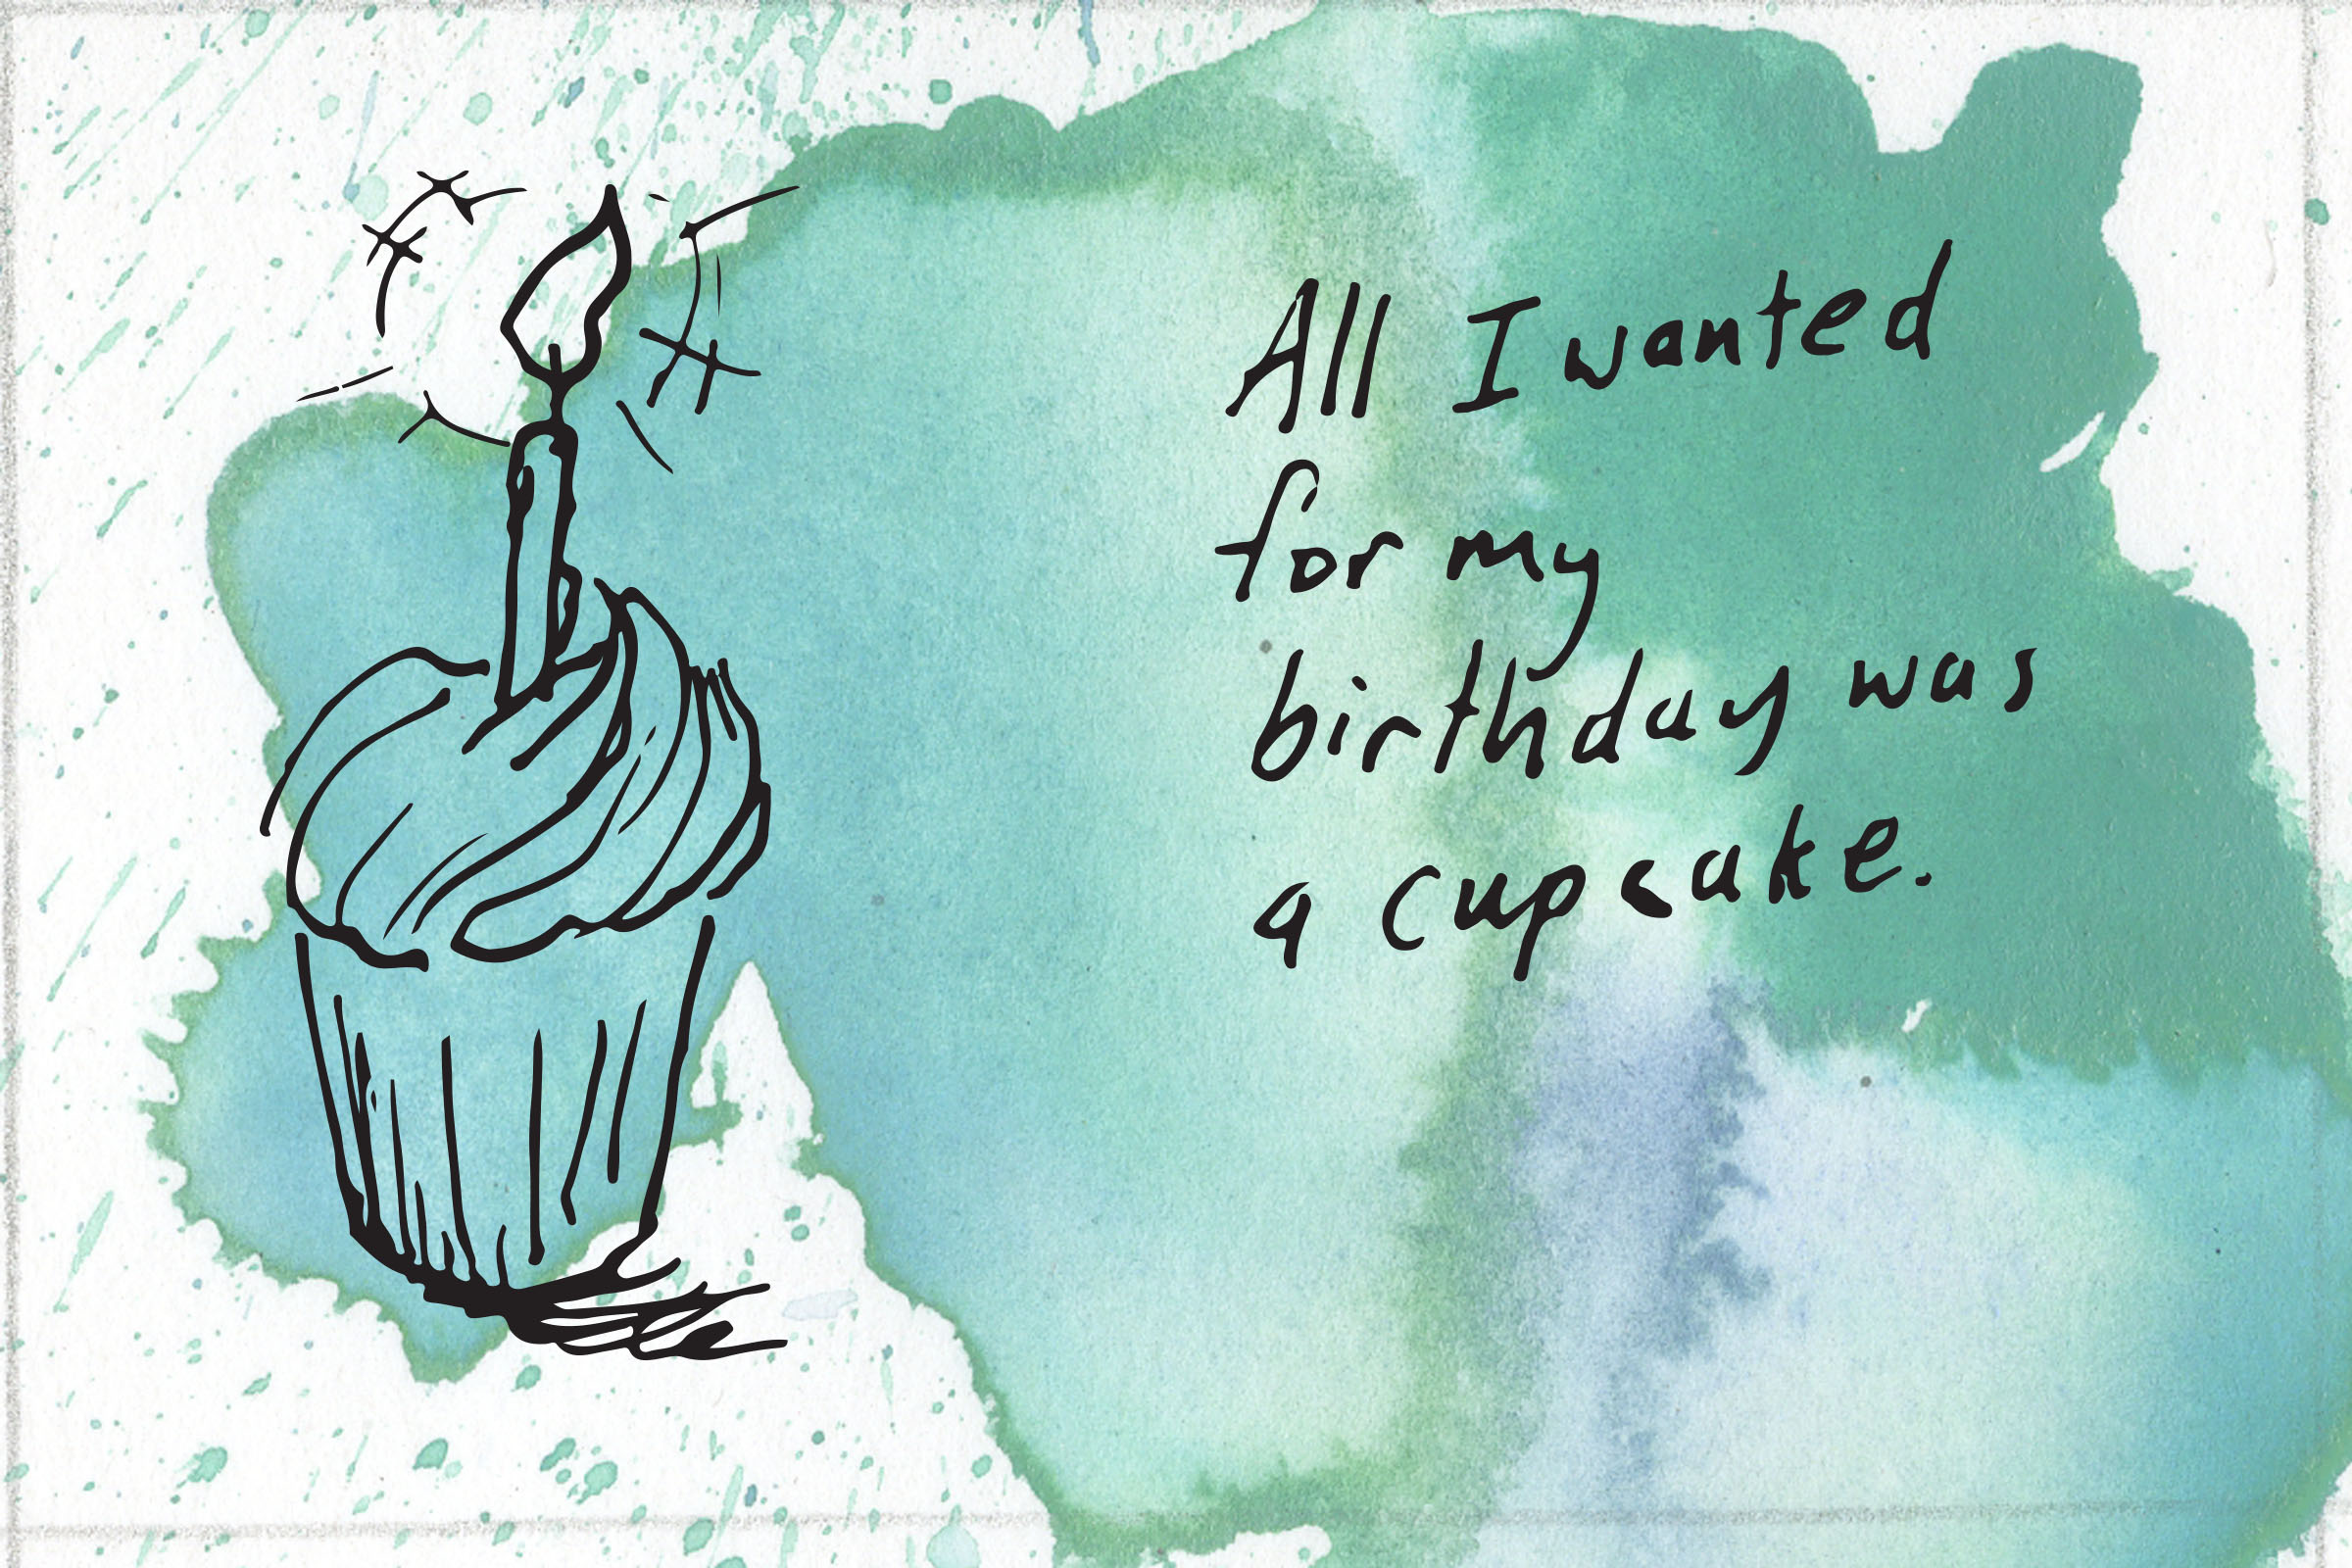 All I wanted
for my
birthday was
a cupcake.